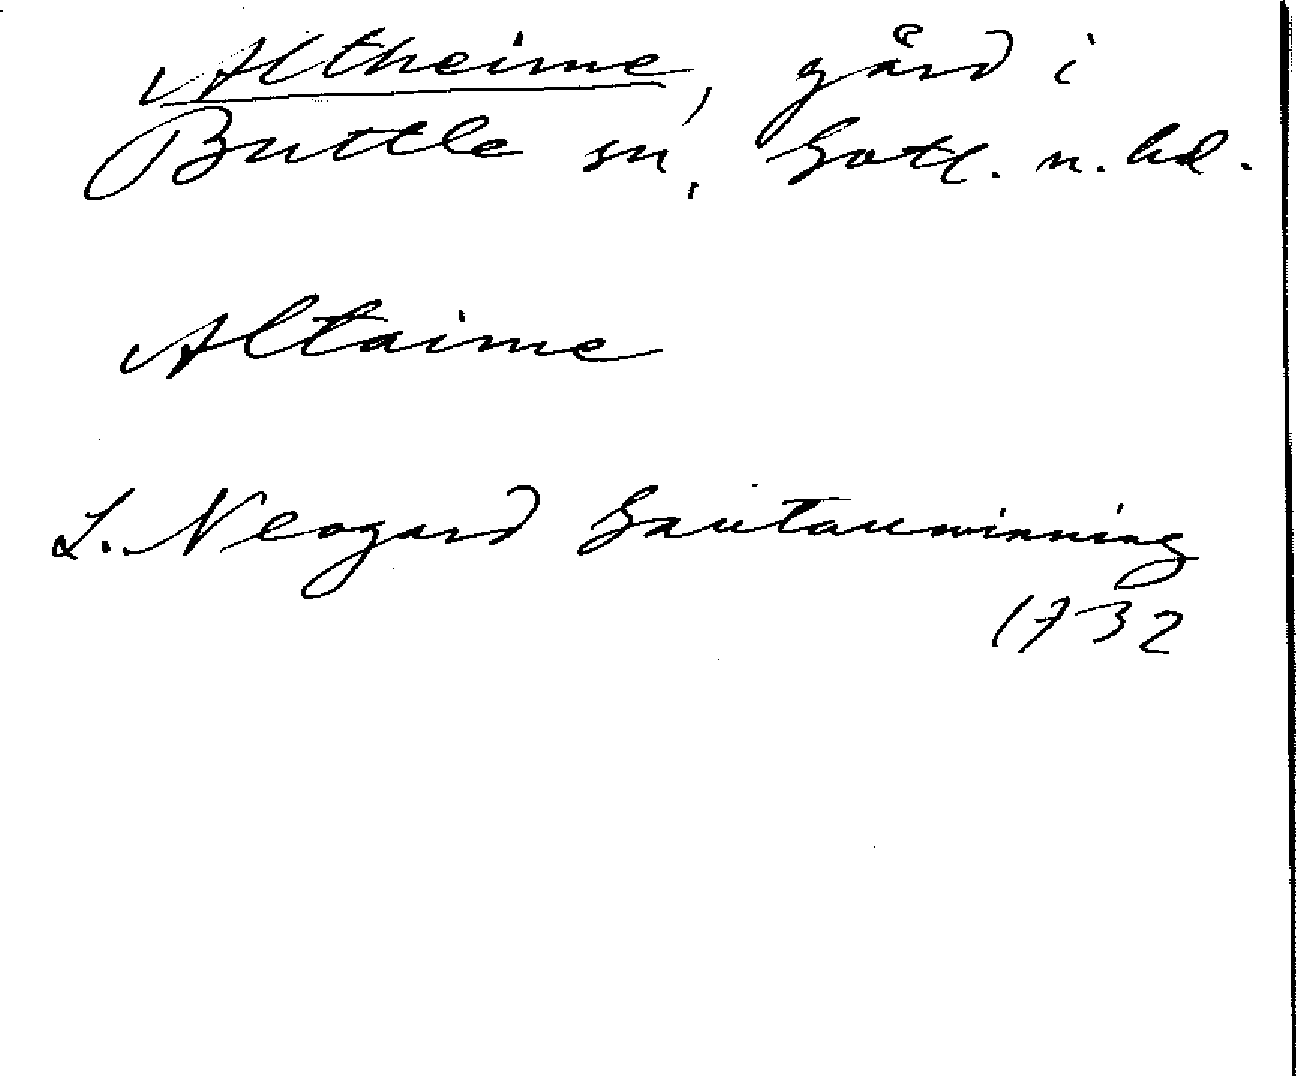 Altheime, gård i
Buttle sn, Gotl. n. hd.
Altaime
L. Neogard Gautauminning
1732